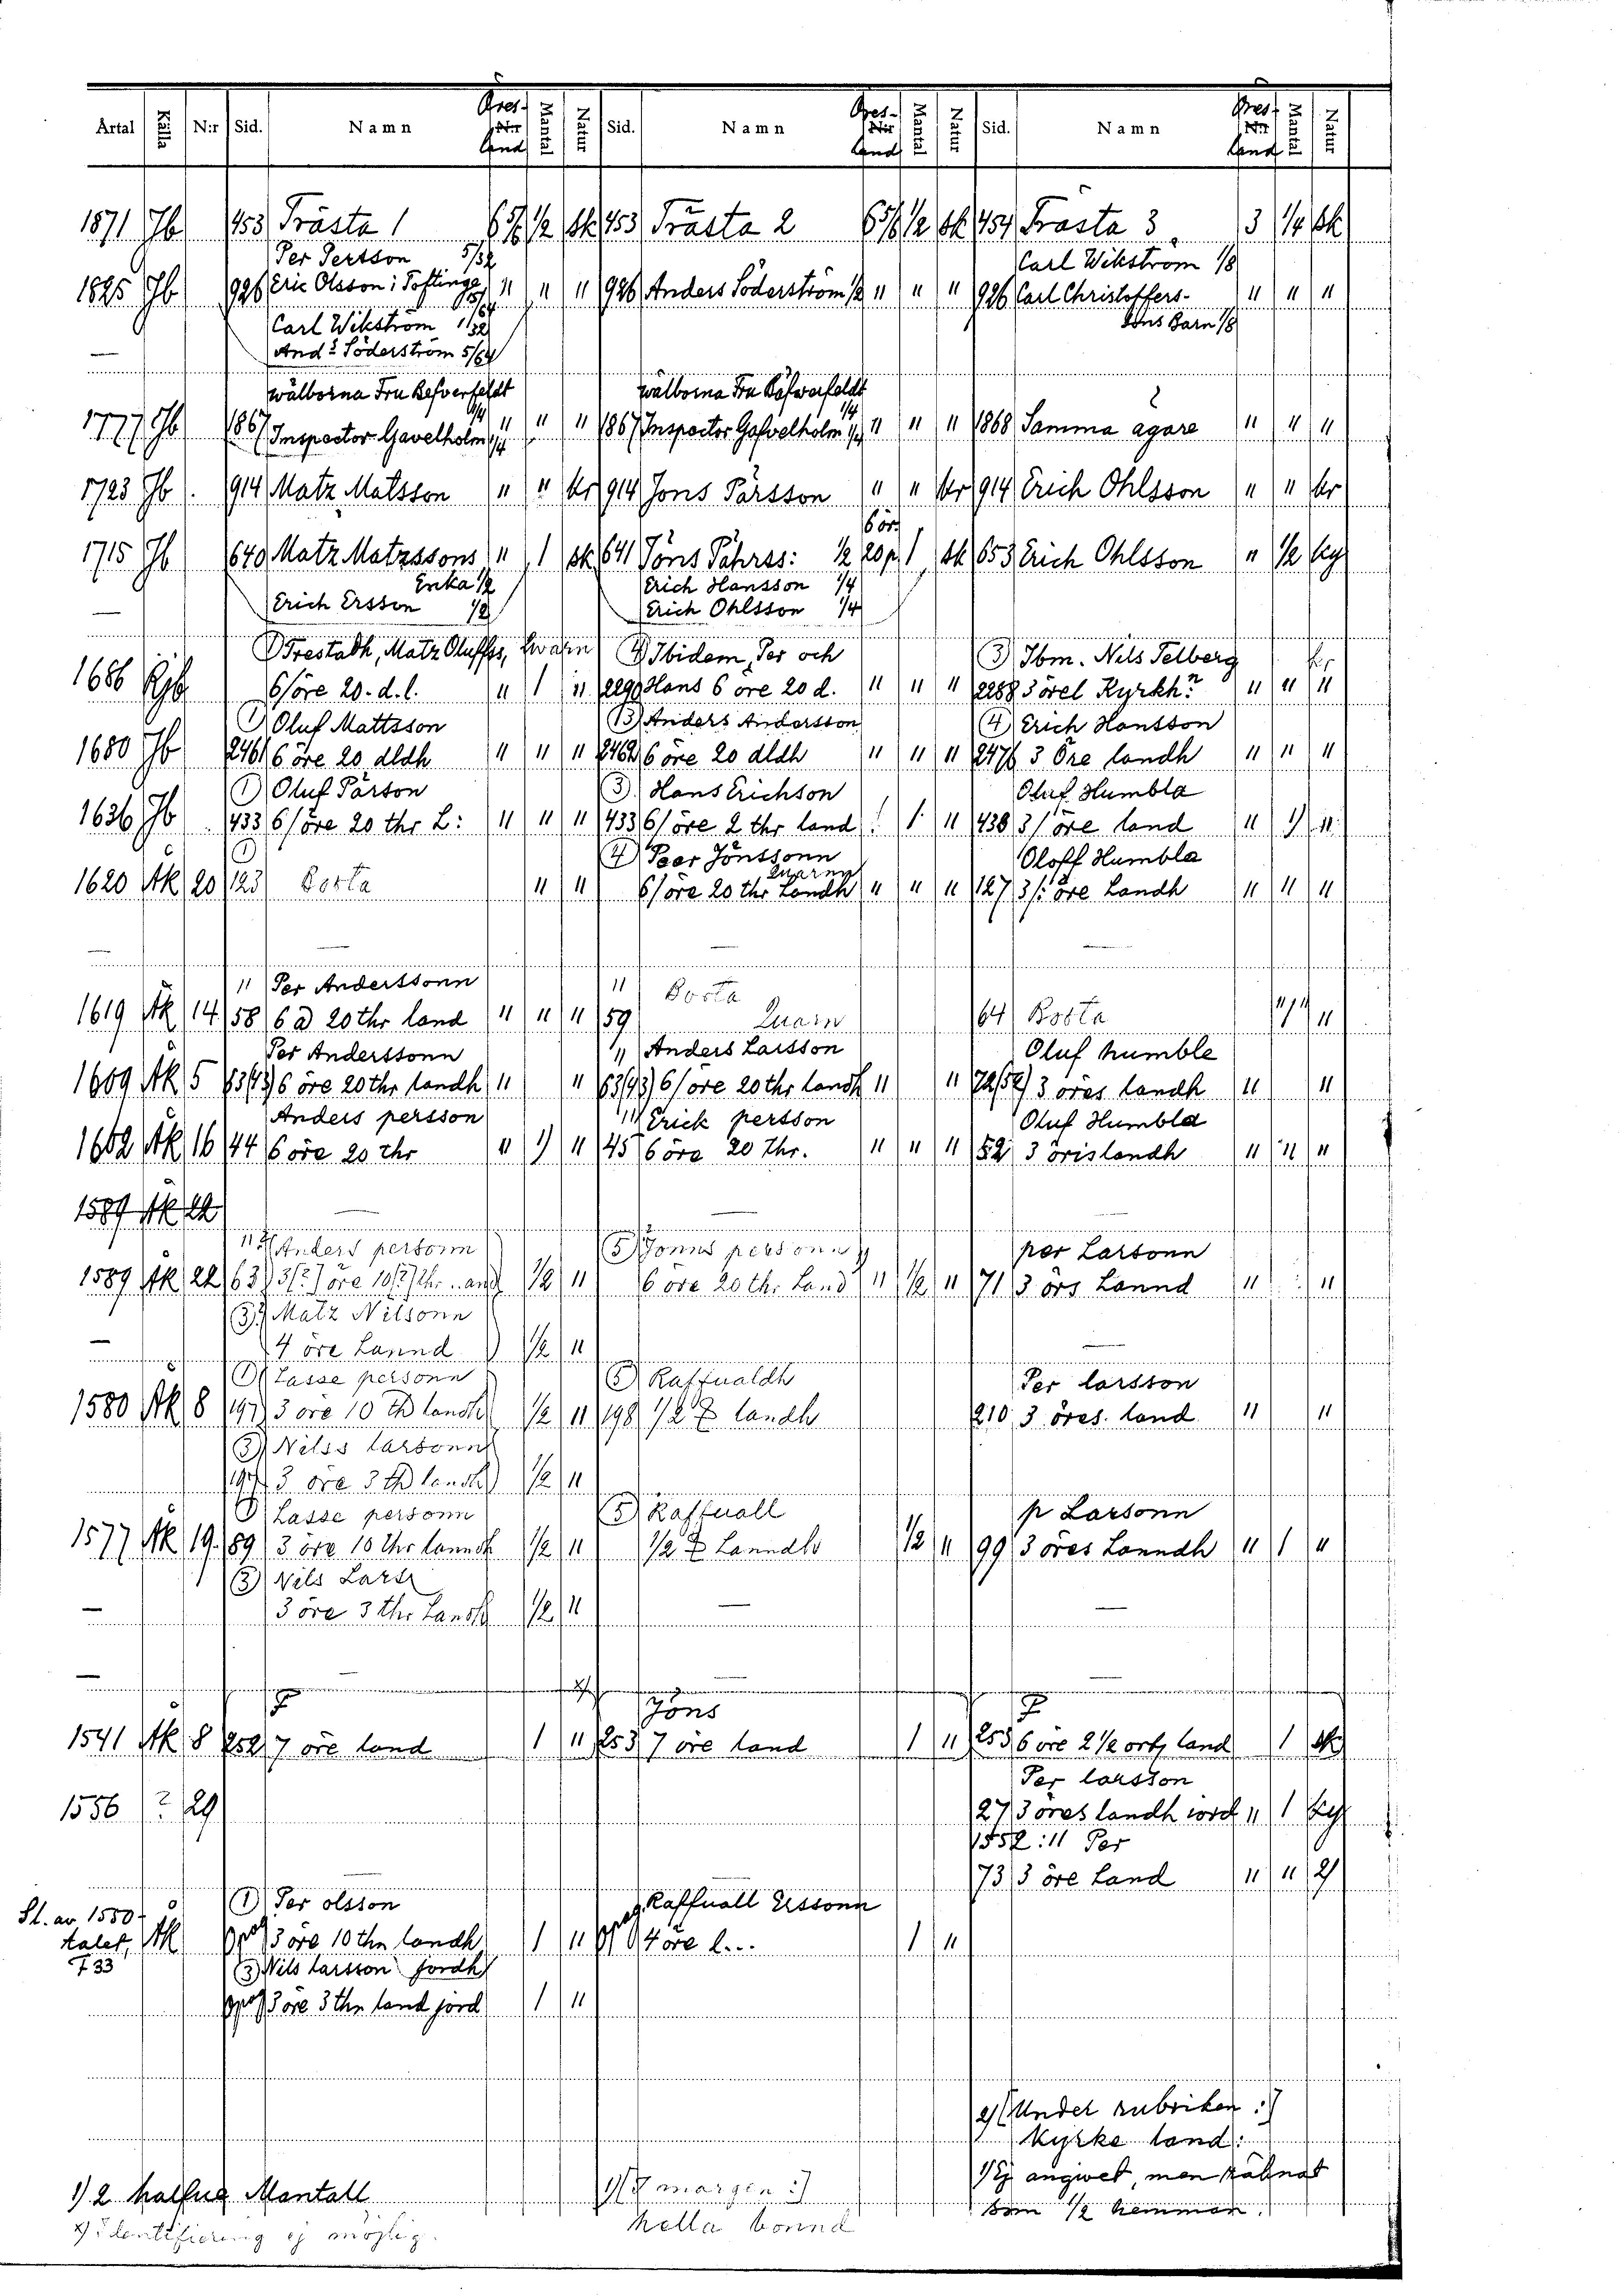 Årtal Källa N:r Sid. Namn Öres- Nr land Mantal Natur Sid. Namn Öres- Nr land Mantal Natur Sid. Namn Öresl. Nr land Mantal Natur
1871 Jb 453 Trästa 1 6 5/6 1/2 Sk 453 Trästa 2 6 5/6 1/2 Sk 454 Trästa 3 3 1/4 Sk
Per Persson 5/32 Carl Wikström 1/8
1825 Jb 926 Eric Olsson i Töftinge 15/64 " " " 926 Anders Söderström 1/2 " " " 926 Carl Christoffers- " " "
Carl Wikström 1/32 sons Barn 1/8
And:s Söderström 5/64
wälborna Fru Refverfeldt 1/4 wälborna Fru Räfwerfeldt 1/4
1777 Jb 1867 Inspector Gavelholm 1/4 " " " 1867 Inspector Gafvelholm 1/4 " " " 1868 Samma ägare " " "
1723 Jb. 914 Matz Matsson " " kr 914 Jöns Pärsson " " kr 914 Erich Ohlsson " " kr
6 ör
1715 Jb 640 Matz Matzssons " 1 sk 641 Jöns Pährss: 1/2 20 p. 1 sk 653 Erich Ohlsson " 1/2 ky
Enka 1/2 Erich Hansson 1/4
Erich Ersson 1/2 Erich Ohlsson 1/4
1) Trestadh, Matz Oluffss, Hwarn 4) Ibidem, Per och 3) Ibm. Nils Telberg kr
1686 Rjb 6/öre 20. d. l. " 1 " 2290 Hans 6 öre 20 d. " " " 2288 3 örel Kyrkh:n " " "
1) Oluf Mattsson 3) Anders Andersson 4) Erich Hansson
1680 Jb 2461 6 öre 20 dldh " " " 2462 6 öre 20 dldh " " " 2476 3 Öre landh " " "
1) Oluf Pärson 3) Hans Erichson Oluf Humbla
1636 Jb 433 6/öre 20 thr L: " " " 433 6/öre 2 thr land ! 1 " 438 3/öre land " " "
1) 4) Peer Jönssonn Oloff Humbla
1620 Äk 20 123 Borta " " Quarnn 6/öre 20 thr Landh " " " 127 3/: öre Landh " " "
" Per Anderssonn " Borta
1619 Äk 14 58 6 ö 20 thr land " " " 59 Quarn 64 Borta " " "
Per Anderssonn " Anders Larsson Oluf humble
1609 Äk 5 63(43) 6 öre 20 thr landh " " 63(43) 6/öre 20 thr landh " " 72(52) 3 öres landh " "
Anders persson " Erick persson Oluf Humbla
1602 Äk 16 44 6 öre 20 thr " 1) " 45 6 öre 20 thr. " " " 52 3 örislandh " " "
1589 Äk 22
Anders personn 5) Jönns personn per Larsonn
1589 Äk 22 63 3(?) öre 10(?) thr land 1/2 " 6 öre 20 thr Land " 1/2 " 71 3 örs Lannd " "
3) Matz Nilsonn
4 öre Lannd 1/2 "
1) Lasse personn 5) Raffualdh Per larsson
1580 Äk 8 197 3 öre 10 th landh 1/2 " 198 1/2 landh 210 3 öres. land " "
3) Nilss larsonn
197 3 öre 3 th landh 1/2 "
1) Lasse personn 5) Raffuall p Larsonn
1577 Äk 19 89 3 öre 10 thr lanndh 1/2 " 1/2 Lanndh 1/2 " 99 3 öres Lanndh " 1 "
3) Nils Lars
3 öre 3 thr Landh 1/2 "
Jöns
1541 Äk 8 252 7 öre land 1 " 253 7 öre land 1 " 253 6 öre 2 1/2 ort, land 1 sk
Per larsson
1556 ? 29 27 3 öres landh iord " 1 ky
1552:11 Per
73 3 öre Land " " 2)
Sl. av 1550- 1) Per olsson opag. Raffuall Erssonn
talet, Äk opag 3 öre 10 thn landh 1 " 4 öre l... 1 "
F 33 3) Nils larsson jordh
opag 3 öre 3 thn land jord 1 "
2) (Under rubriken :)
Kyrke land:
1) 2 halfue Mantall 1) (I margen :) 1) Ej angivet, men räknat
x) identifiering ej möjlig. hella bonnd som 1/2 hemman.